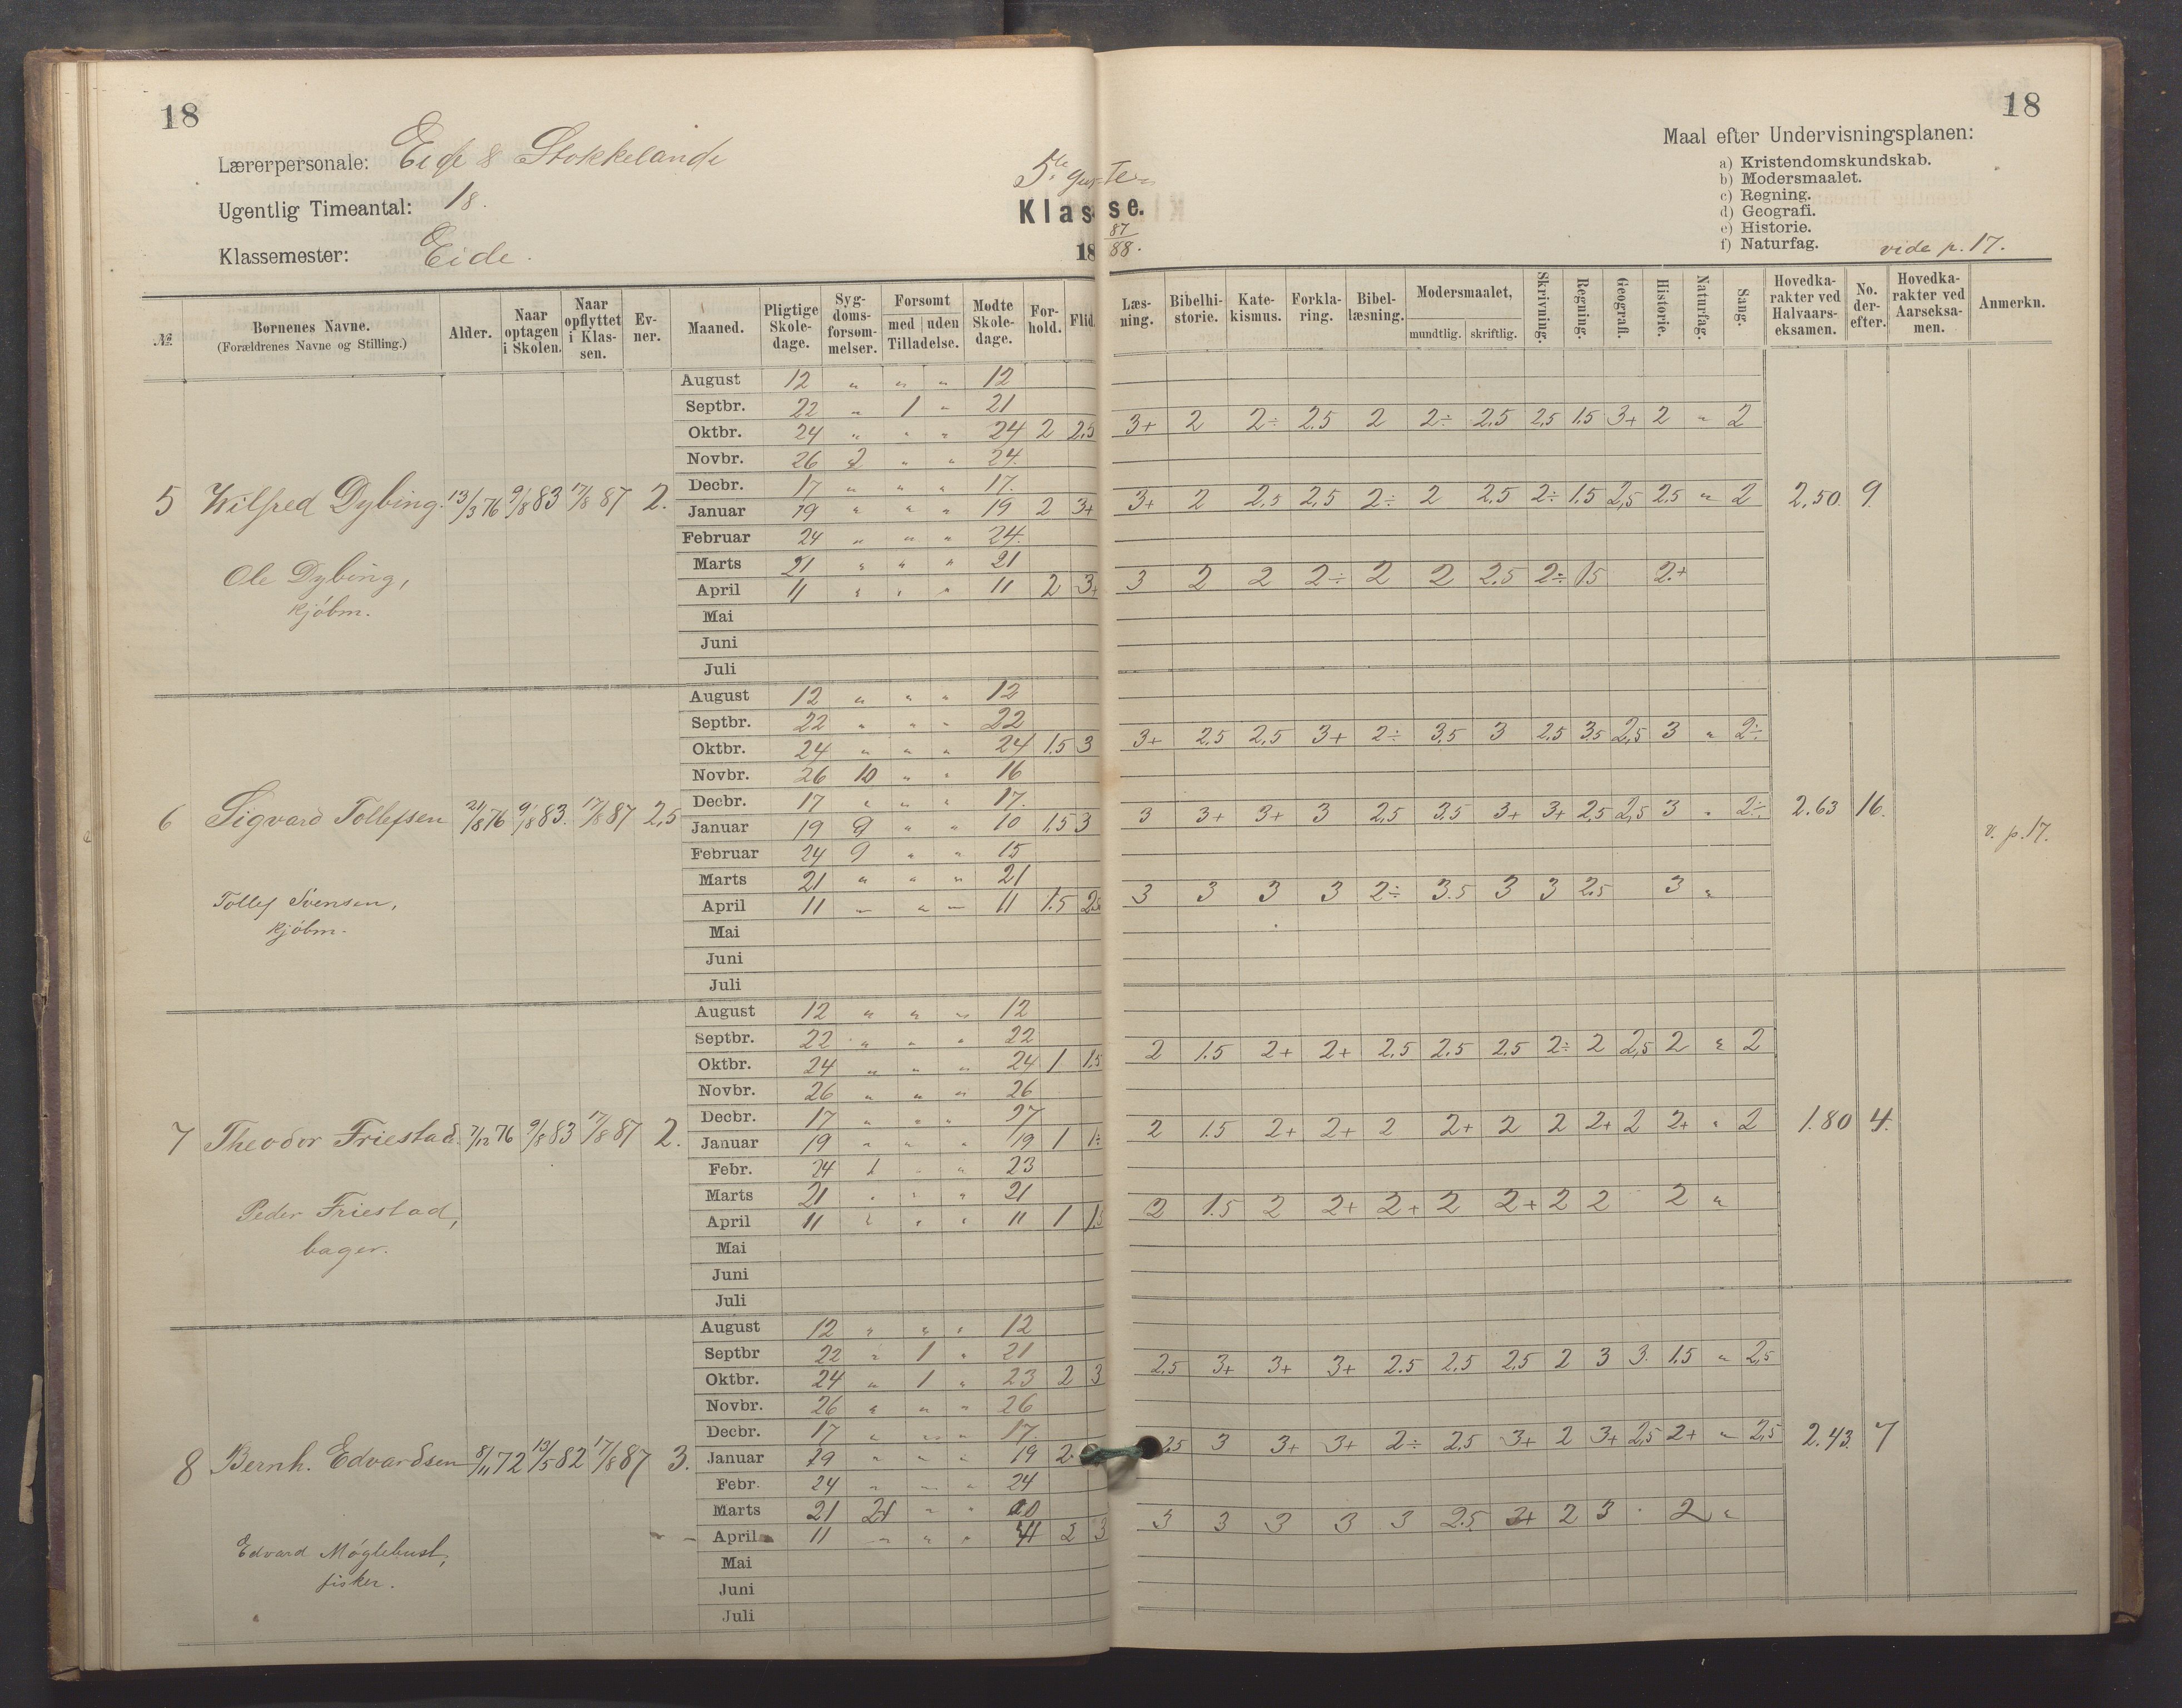 18
18
Lærerpersonale: Eide & Stokkelande
Ugentlig Timeantal: 18.
Klassemester: Eide.
5te
Klasse.
18 87/88.
Maal efter Undervisningsplanen:
a) Kristendomskundskab.
b) Modersmaalet.
c) Regning.
d) Geografi.
e) Historie.
f) Naturfag. vide p. 17.
№. Børnenes Navne. (Forældrenes Navne og Stilling.) Alder. Naar optagen i Skolen. Naar opflyttet i Klassen. Evner. Maaned. Pligtige Skoledage. Sygdomsforsømmelser. Forsømt med uden Tilladelse. Mødte Skoledage. Forhold. Flid. Læsning. Bibelhistorie. Katekismus. Forklaring. Bibellæsning. Modersmaalet, mundtlig. skriftlig. Skrivning. Regning. Geografi. Historie. Naturfag. Sang. Hovedkarakter ved Halvaarseksamen. No. derefter. Hovedkarakter ved Aarseksamen. Anmerkn.
August 12 " " " 12
Septbr. 22 " 1 " 21
Oktbr. 24 " " " 24 2 2,5 3+ 2 2÷ 2.5 2 2÷ 2.5 2,5 1.5 3+ 2 " 2
Novbr. 26 2 " " 24.
Decbr. 17 " " " 17.
5 Wilfred Dybing. 13/3 76 9/8 83 17/8 87 2.
Januar 19 " " " 19 2 3+ 3+ 2 2,5 2,5 2÷ 2 2.5 2÷ 1.5 2,5 2.5 " 2 2,50. 9.
Februar 24 " " " 24.
Marts 21 " " " 21
Ole Dybing,
kjøbm.
April 11 " " " 11 2 3+ 3 2 2 2÷ 2 2 2.5 2÷ 1.5 2+
Mai
Juni
Juli
August 12 " " " 12
Septbr. 22 " " " 22
Oktbr. 24 " " " 24 1.5 3 3+ 2.5 2,5 3+ 2÷ 3.5 3 2.5 3.5 2,5 3 " 2÷
Novbr. 26 10 " " 16
Decbr. 17 " " " 17.
6 Sigvard Tollefsen 21/8 76 9/8 83. 17/8 87 2,5
Januar 19 9 " " 10 1,5 3 3 3+ 3+ 3 2,5 3.5 3+ 3+ 2,5 2,5 3 " 2÷ 2.63 16.
v. p. 17.
Februar 24 9 " " 15
Marts 21 " " " 21
Tollef Svensen,
kjøbm.
April 11 " " " 11 1.5 2.5 3 3 3 3 2÷ 3.5 3 3 2.5 3 "
Mai
Juni
Juli
August 12 " " " 12
Septbr. 22 " " " 22
Oktbr. 24 " " " 24 1 1.5 2 1.5 2+ 2+ 2.5 2.5 2.5 2÷ 2 2,5 2 " 2
Novbr. 26 " " " 26
Decbr. 17 " " " 27
7 Theodor Friestad. 7/12 76 9/8 83 17/8 87 2.
Januar 19 " " " 19 1 1÷ 2 1.5 2+ 2+ 2 2+ 2 2 2+ 2 2+ " 2 1.80 4.
Febr. 24 1 " " 23
Marts 21 " " " 21
Peder Friestad,
bager.
April 11 " " " 11 1 1.5 2 1.5 2 2+ 2+ 2 2+ 2 2 2 "
Mai
Juni
Juli
August 12 " " " 12
Septbr 22 " 1 " 21
Oktbr. 24 " 1 " 23 2 3 2.5 3+ 3+ 3+ 2.5 2,5 2,5 2 3 3. 1.5 " 2,5
Novbr. 26 " " " 26
Decbr. 17 " " " 17.
8 Bernh. Edvardsen 8/11 72 13/5 82 17/8 87 3.
Januar 19 " " " 19 2 2,5 3 3+ 3+ 2÷ 2.5 3+ 2 3+ 2,5 2+ " 2,5 2.43. 7
Febr. 24 " " " 24
Marts 21 " "
Edvard
fisker.
April 11 " " " 2 3 3 3 3 3 3 2.5 2 3 2 "
Mai
Juni
Juli